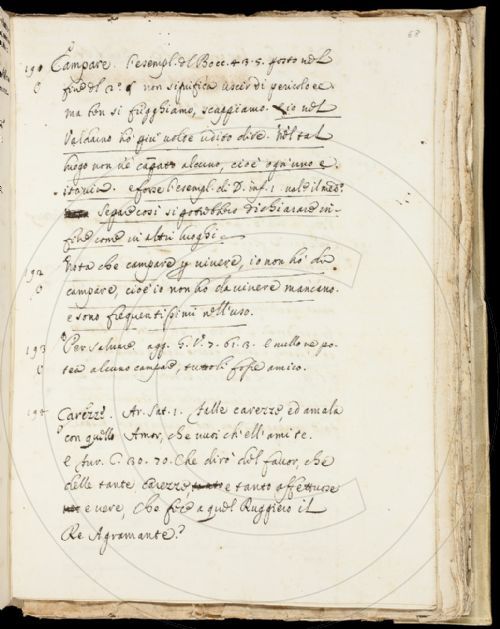 68
190 Campare. l'esempl. del Bocc. 4. 3. 5. posto nel
fine del 2.º § non significa uscer di pericolo ec.
ma ben si fugghiamo, scappiamo. e io nel
Valdarno ho più volte udito dire. Nel tal
luogo non v'è campato alcuno, cioè ogn'uno e
ito via. e forse l'esempl. di D. inf. 1. vale il med.º
Se pare così si potrebbero dichiarare in-
fine come in altri luoghi.
192 Nota che campare p vivere, io non ho da
campare, cioè io non ho da vivere mancano.
e sono frequentissimi nell'uso.
193 Per salvare. agg. G. V. 7. 61. 3. e nullo ne po-
tea alcuno campare, tutto li fosse amico.
194 Carezze. Ar. Sat. 1. Falle carezze, ed amala
con quello Amor, che vuoi ch'ell'ami te.
e Fur. C. 30. 70. Che dirò del favor, che
delle tante carezze, e tanto affettuose
e vere, Che fece a quel Ruggiero il
Re Agramante?